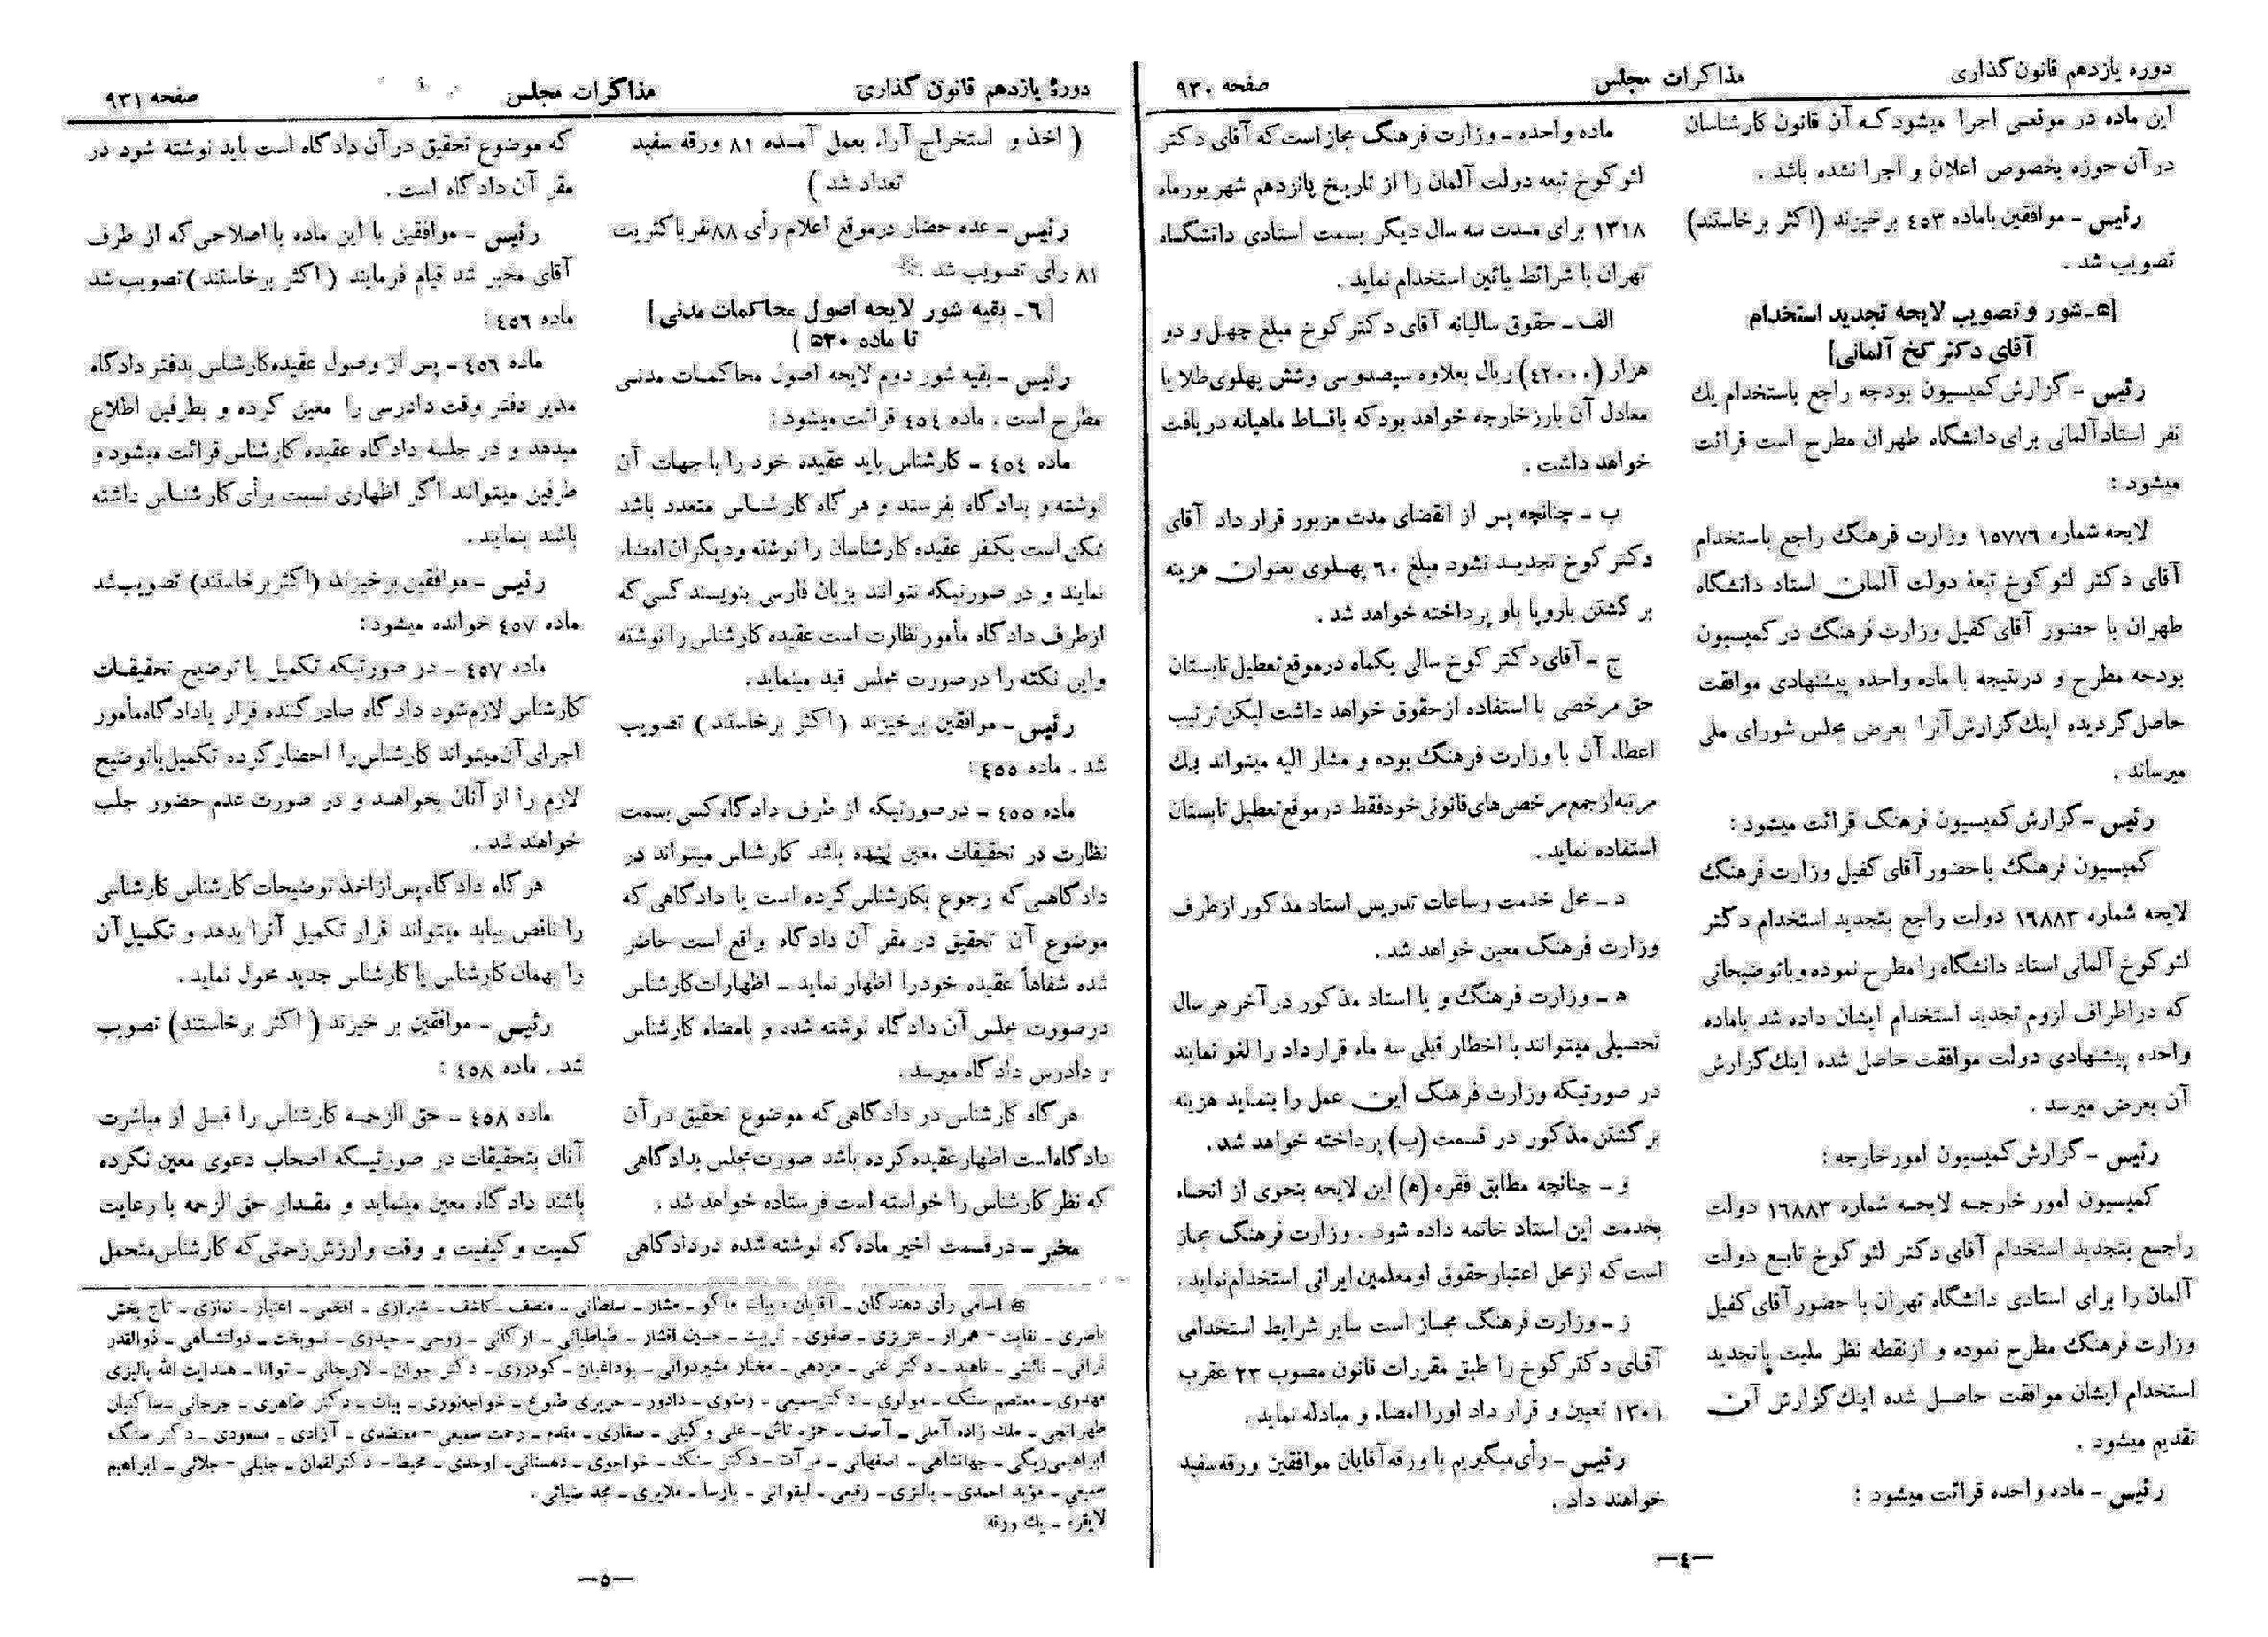 دوره یازدهم قانون‌گذاری
مذاکرات مجلس
صفحه ۹۳۰
این ماده در موقعی اجرا میشود که آن قانون کارشناسان
در آن حوزه بخصوص اعلان و اجرا نشده باشد .
رئیس - موافقین باماده ٤٥٣ برخیزند (اکثر برخاستند)
تصویب شد .
[٥-شور و تصویب لایحه تجدید استخدام
آقای دکتر کخ آلمانی]
رئیس - گزارش کمیسیون بودجه راجع باستخدام یك
نفر استاد آلمانی برای دانشگاه طهران مطرح است قرائت
میشود :
لایحه شماره ١٥٧٧٦ وزارت فرهنگ راجع باستخدام
آقای دکتر لئو کوخ تبعهٔ دولت آلمان استاد دانشگاه
طهران با حضور آقای کفیل وزارت فرهنگ در کمیسیون
بودجه مطرح و درنتیجه با ماده واحده پیشنهادی موافقت
حاصل گردیده اینك گزارش آنرا بعرض مجلس شورای ملی
میرساند .
رئیس - گزارش کمیسیون فرهنگ قرائت میشود :
کمیسیون فرهنگ با حضور آقای کفیل وزارت فرهنگ
لایحه شماره ١٦٨٨٣ دولت راجع بتجدید استخدام دکتر
لئو کوخ آلمانی استاد دانشگاه را مطرح نموده و باتوضیحاتی
که در اطراف لزوم تجدید استخدام ایشان داده شد باماده
واحده پیشنهادی دولت موافقت حاصل شده اینك گزارش
آن بعرض میرسد .
رئیس - گزارش کمیسیون امور خارجه :
کمیسیون امور خارجه لایحه شماره ١٦٨٨٣ دولت
راجع بتجدید استخدام آقای دکتر لئو کوخ تابع دولت
آلمان را برای استادی دانشگاه تهران با حضور آقای کفیل
وزارت فرهنگ مطرح نموده و از نقطه نظر ملیت باتجدید
استخدام ایشان موافقت حاصل شده اینك گزارش آن
تقدیم میشود .
رئیس - ماده واحده قرائت میشود :
ماده واحده - وزارت فرهنگ مجاز است که آقای دکتر
لئو کوخ تبعه دولت آلمان را از تاریخ پانزدهم شهریورماه
١٣١٨ برای مدت سه سال دیگر بسمت استادی دانشگاه
تهران با شرائط پائین استخدام نماید .
الف - حقوق سالیانه آقای دکتر کوخ مبلغ چهل و دو
هزار (٤٢٠٠٠) ریال بعلاوه سیصدوسی وشش پهلوی طلا یا
معادل آن بارز خارجه خواهد بود که باقساط ماهیانه دریافت
خواهد داشت .
ب - چنانچه پس از انقضای مدت مزبور قرار داد آقای
دکتر کوخ تجدید نشود مبلغ ٦٠ پهلوی بعنوان هزینه
برگشتن باروپا باو پرداخته خواهد شد .
ج - آقای دکتر کوخ سالی یکماه درموقع تعطیل تابستان
حق مرخصی با استفاده از حقوق خواهد داشت لیکن ترتیب
اعطاء آن با وزارت فرهنگ بوده و مشار الیه میتواند یك
مرتبه از جمع مرخصی های قانونی خود فقط در موقع تعطیل تابستان
استفاده نماید .
د - محل خدمت وساعات تدریس استاد مذکور از طرف
وزارت فرهنگ معین خواهد شد .
ه - وزارت فرهنگ و یا استاد مذکور در آخر هر سال
تحصیلی میتوانند با اخطار قبلی سه ماه قرارداد را لغو نمایند
در صورتیکه وزارت فرهنگ این عمل را بنماید هزینه
برگشتن مذکور در قسمت (ب) پرداخته خواهد شد .
و - چنانچه مطابق فقره (ه) این لایحه بنحوی از انحاء
بخدمت این استاد خاتمه داده شود . وزارت فرهنگ مجاز
است که از محل اعتبار حقوق او معلمین ایرانی استخدام نماید .
ز - وزارت فرهنگ مجاز است سایر شرایط استخدامی
آقای دکتر کوخ را طبق مقررات قانون مصوب ٢٣ عقرب
١٣٠١ تعیین و قرار داد اورا امضاء و مبادله نماید .
رئیس - رأی میگیریم با ورقه آقایان موافقین ورقه سفید
خواهند داد .
—٤—
دورهٔ یازدهم قانون گذاری
مذاکرات مجلس
صفحه ۹۳۱
( اخذ و استخراج آراء بعمل آمده ٨١ ورقه سفید
تعداد شد )
رئیس - عده حضار درموقع اعلام رأی ٨٨ نفر باکثریت
٨١ رأی تصویب شد .
[٦- بقیه شور لایحه اصول محاکمات مدنی]
تا ماده ٥٣٠ )
رئیس - بقیه شور دوم لایحه اصول محاکمات مدنی
مطرح است . ماده ٤٥٤ قرائت میشود :
ماده ٤٥٤ - کارشناس باید عقیده خود را با جهات آن
نوشته و بدادگاه بفرستد و هر گاه کارشناس متعدد باشد
ممکن است یکنفر عقیده کارشناسان را نوشته ودیگران امضاء
نمایند و در صورتیکه نتوانند بزبان فارسی بنویسند کسی که
از طرف دادگاه مأمور نظارت است عقیده کارشناس را نوشته
واین نکته را در صورت مجلس قید مینماید .
رئیس - موافقین برخیزند (اکثر برخاستند ) تصویب
شد . ماده ٤٥٥ :
ماده ٤٥٥ - در صورتیکه از طرف دادگاه کسی بسمت
نظارت در تحقیقات معین نشده باشد کارشناس میتواند در
دادگاهی که رجوع بکارشناس کرده است یا دادگاهی که
موضوع آن تحقیق در مقر آن دادگاه واقع است حاضر
شده شفاهاً عقیده خودرا اظهار نماید - اظهارات کارشناس
درصورت مجلس آن دادگاه نوشته شده و بامضاء کارشناس
و دادرس دادگاه میرسد .
هر گاه کارشناس در دادگاهی که موضوع تحقیق در آن
دادگاه است اظهار عقیده کرده باشد صورت مجلس بدادگاهی
که نظر کارشناس را خواسته است فرستاده خواهد شد .
مخبر - در قسمت اخیر ماده که نوشته شده در دادگاهی
که موضوع تحقیق در آن دادگاه است باید نوشته شود در
مقر آن دادگاه است .
رئیس - موافقین با این ماده با اصلاحی که از طرف
آقای مخبر شد قیام فرمایند (اکثر برخاستند ) تصویب شد
ماده ٤٥٦ :
ماده ٤٥٦ - پس از وصول عقیده کارشناس بدفتر دادگاه
مدیر دفتر وقت دادرسی را معین کرده و بطرفین اطلاع
میدهد و در جلسه دادگاه عقیده کارشناس قرائت میشود و
طرفین میتوانند اگر اظهاری نسبت برأی کارشناس داشته
باشند بنمایند .
رئیس - موافقین برخیزند (اکثر برخاستند) تصویب شد
ماده ٤٥٧ خوانده میشود :
ماده ٤٥٧ - در صورتیکه تکمیل یا توضیح تحقیقات
کارشناس لازم شود دادگاه صادر کننده قرار یا دادگاه مأمور
اجرای آن میتواند کارشناس را احضار کرده تکمیل یا توضیح
لازم را از آنان بخواهد و در صورت عدم حضور جلب
خواهند شد .
هر گاه دادگاه پس از اخذ توضیحات کارشناس کارشناسی
را ناقص بیابد میتواند قرار تکمیل آنرا بدهد و تکمیل آن
را بهمان کارشناس یا کارشناس جدید محول نماید .
رئیس - موافقین بر خیزند (اکثر برخاستند) تصویب
شد . ماده ٤٥٨ :
ماده ٤٥٨ - حق الزحمه کارشناس را قبل از مباشرت
آنان بتحقیقات در صورتیکه اصحاب دعوی معین نکرده
باشند دادگاه معین مینماید و مقدار حق الزحمه با رعایت
کمیت و کیفیت و وقت وارزش زحمتی که کارشناس متحمل
اسامی رأی دهندگان - آقایان : بیات ماکو - مشار - سلطانی - منصف - کاشف - شیرازی - افخمی - اعتبار - نمازی - تاج بخش
ناصری - نقابت - همراز - عزیزی - صفوی - تربیت - حسین افشار - طباطبائی - ارکانی - روحی - حیدری - نوبخت - دولتشاهی - ذوالقدر
نراقی - نائینی - ناهید - دکتر غنی - مژدهی - مختار مشیردوانی - بوداغیان - گودرزی - دکتر جوان - لاریجانی - توانا - هدایت الله پالیزی
مهدوی - معتصم سنگ - مولوی - دکتر سمیعی - رضوی - دادور - حریری طلوع - خواجه نوری - بیات - دکتر طاهری - جرجانی - ساکنیان
طهرانچی - ملك زاده آملی - آصف - حمزه تاش - علی وکیلی - صفاری - مقدم - رحمت سمیعی - معتضدی - آزادی - مسعودی - دکتر سنگ
ابراهیمی ریگی - جهانشاهی - اصفهانی - مرآت - دکتر سنك - خواجوی - دهستانی - اوحدی - محیط - دکتر لقمان - جلیلی - جلائی - ابراهیم
سمیعی - مؤید احمدی - پالیزی - رفیعی - لیقوانی - پارسا - ملایری - مجد ضیائی .
لایقرء - یك ورقه
—٥—